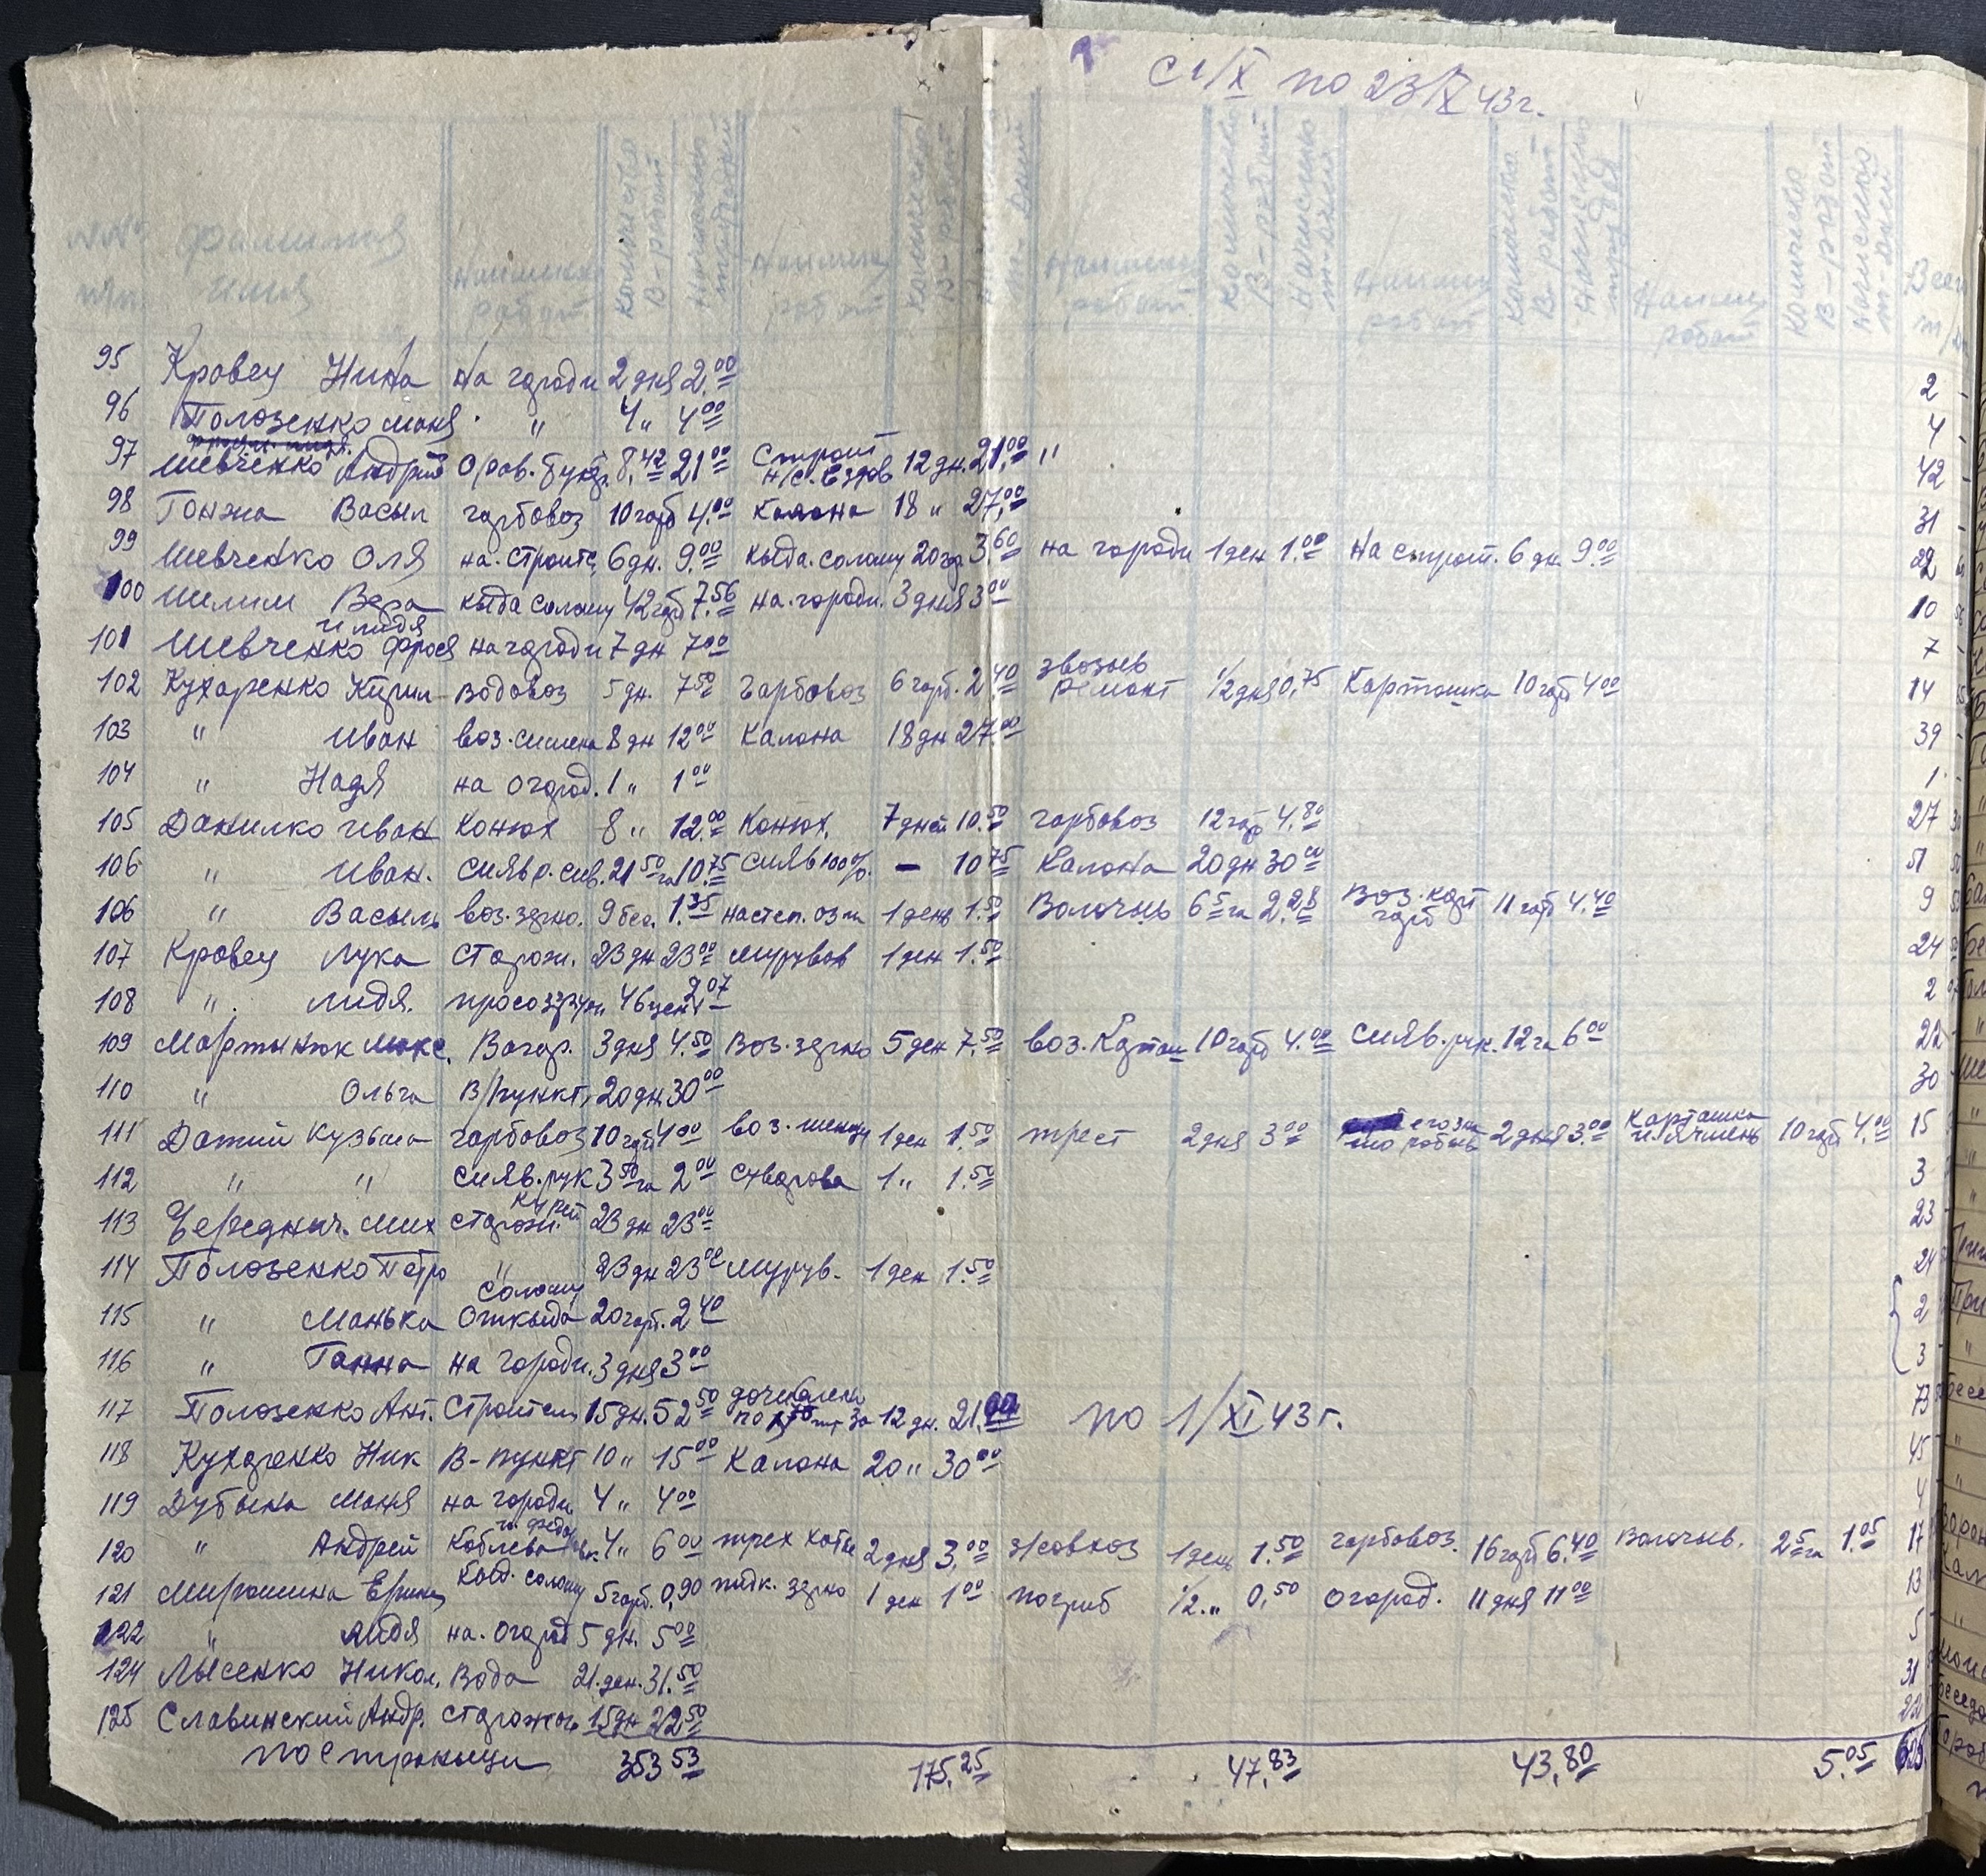 С 1/X по 23/X 43 г.
№№ п/п. Фамилия имя Наимен. работ Количество в-работ Начислено трудодней Наимен. работ Количество в-работ т-дней Наимен. работ Количество в-работ Начислено т-дней Наимен. работ Количество в-работ Начислено труд дней Наимен. работ Количество в-работ Начислено т-дней Всего т/дн
95 Кровец Нина на городи 2 дня 2.00 2
96 Полозенко маня " 4 " 4.00 4
97 Шевченко Андрей 8,42 21.00 Строит 12 дн. 21.00 " 42
98 Гонжа Васыл гарбовоз 10 гарб 4.00 Калона 18 " 27.00 31
99 Шевченко Оля на. строите, 6 дн. 9.00 кыда. солому 20 гар. 3.60 на городи 1 ден 1.00 На строит. 6 дн. 9.00 22
100 Вера кыда солому 42 гарб 7.56 на. городи. 3 дня 3.00 10
и лидя
101 Шевченко фрося на городи 7 дн 7.00 7
102 Кухаренко Кирил водовоз 5 дн. 7.50 Гарбовоз 6 гарб. 2.40 ремонт 1/2 дня 0,75 Картошка 10 гарб 4.00 14
103 " Иван воз. симена 8 дн 12.00 Калона 18 дн 27.00 39
104 " Надя на огород. 1 " 1.00 1
105 Данилко Иван Конюх 8 " 12.00 Конюх. 7 дней 10.50 гарбовоз 12 гарб 4.80 27
106 " Иван. сияв р. сив. 21.50 га 10.75 сияв 100%. - 10.75 Калона 20 дн 30.00 51
106 " Васыль воз. зерно. 9 бес. 1.35 настеп. 1 день 1.50 Волочыв 6.5 га 2.28 Воз. карт гарб 11 гарб 4.40 9
107 Кровец Лука Сторож. 23 дн 23.00 мурував 1 ден 1.50 24
108 ". лидя. просо 46 цент 2.07 2
109 Мартынюк макс. Вагар. 3 дня 4.50 Воз. зерно 5 ден 7.50 воз. Картош 10 гарб 4.00 сияв. рук. 12 га 6.00 22
110 " Ольга В/пункт, 20 дн. 30.00 30
111 Датий Кузьма гарбовоз 10 гарб 4.00 воз. 1 ден 1.50 трест 2 дня 3.00 2 дня 3.00 Карташка и ячмень 10 гарб 4.00 15
112 " " сияв. рук 3.50 га 2.00 1 " 1.50 3
113 Чередныч. мих сторож. курей 23 дн 23.00 23
114 Полозенко Петро " 23 дн 23.00 мурув. 1 ден 1.50 24
115 " Манька Откыда солому 20 гарб. 2.40 2
116 " Ганна на городи. 3 дня 3.00 3
117 Полозенко Ант. Строител 15 дн. 52.50 за 12 дн. 21.00 по 1/XI 43 г. 73
118 Кухаренко Ник В-пункт 10 " 15.00 Калона 20 " 30.00 45
119 Дубына Маня на городи 4 " 4.00 4
120 " Андрей 4 " 6.00 трех хатк 2 дня 3.00 Жовхоз 1 день 1.50 гарбовоз. 16 гарб 6.40 Волочыв. 2.5 га 1.05 17
121 Мирошина Кыд. солому 5 гарб. 0,90 подк. зерно 1 ден 1.00 погриб 1/2 " 0,50 Огород. 11 дня 11.00 13
122 " лидя на. огород 5 дн. 5.00 5
124 Лысенко Никол. Вода 21. ден. 31.50 31
125 Славинский Андр. сторожом 15 дн 22.50 22
по строныци 353.53 175.25 47.83 43,80 5.05